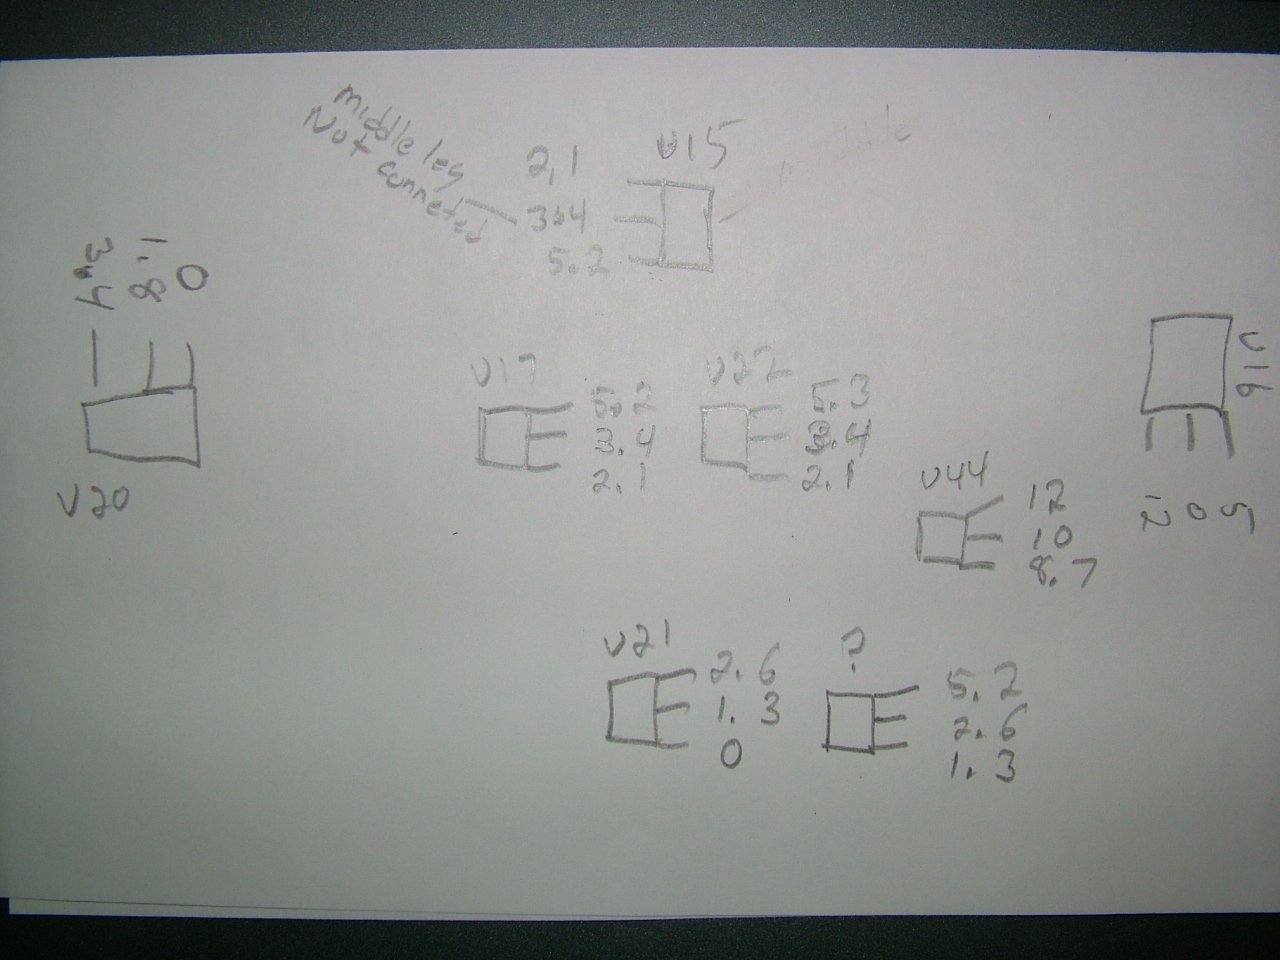 middle leg
Not conneted
2,1
3.4
5.2
U15
3.4
1.8
0
U20
U17
5.2
3.4
2.1
U22
5.3
3.4
2.1
U16
12
0
5
U44
12
10
8.7
U21
2.6
1.3
0
?
5.2
2.6
1.3